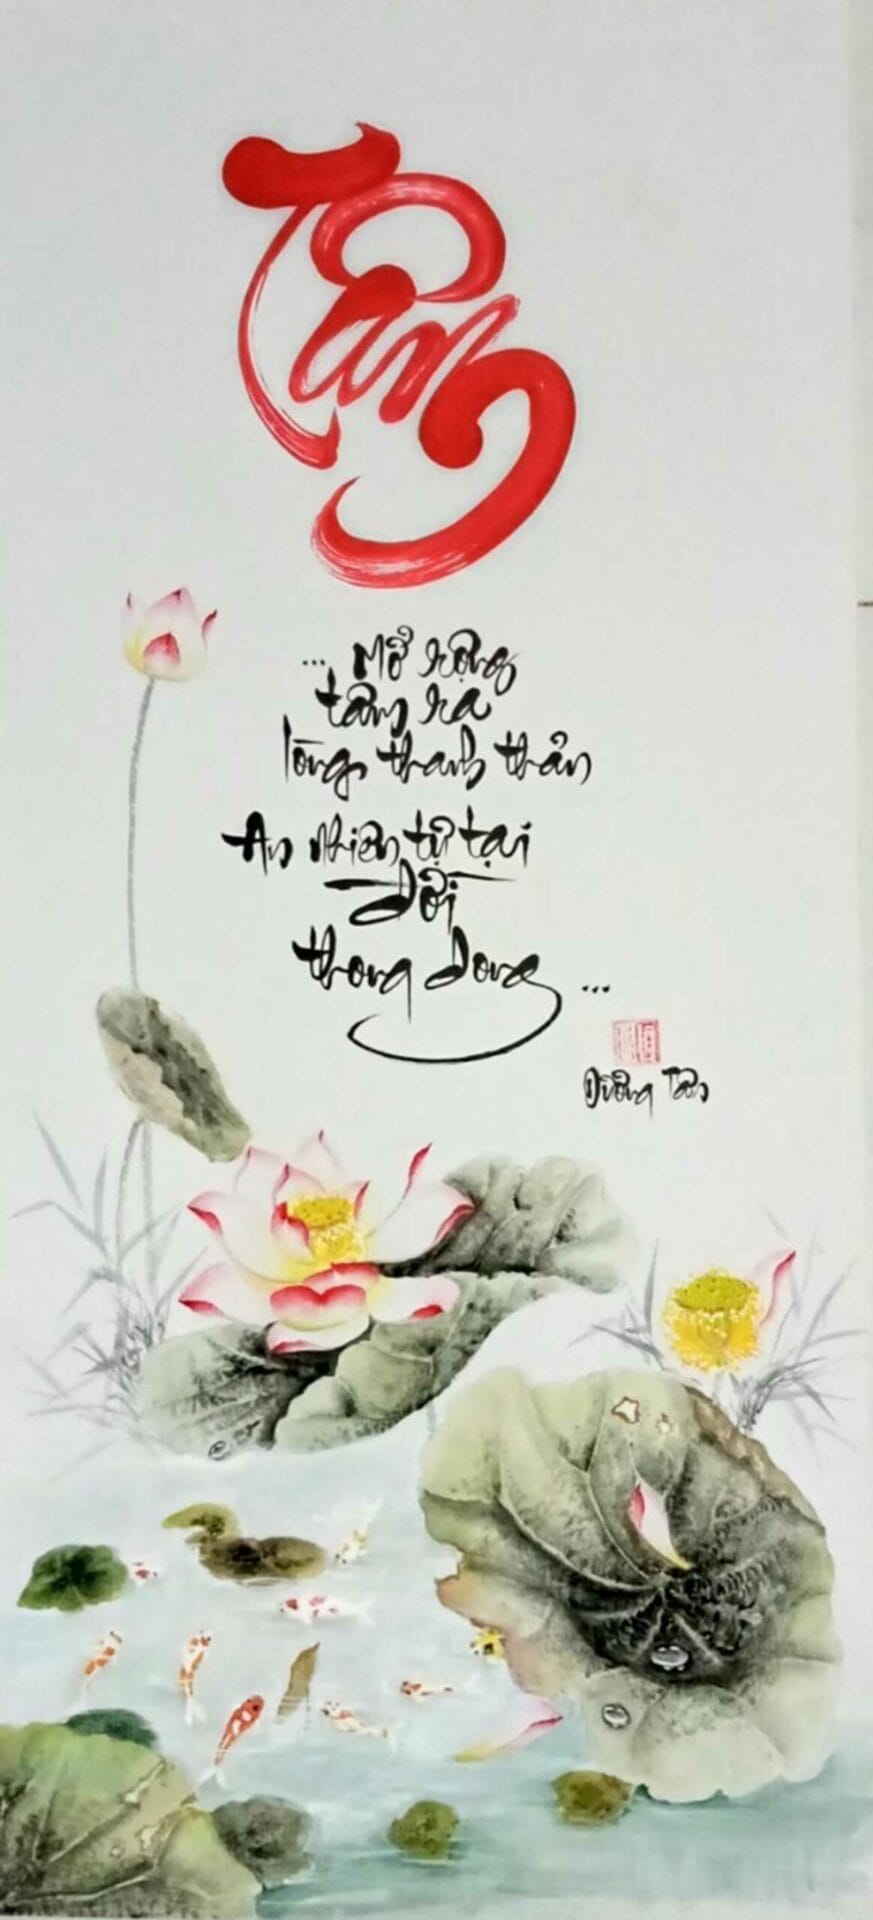 Tâm
... Mở rộng
tâm ra
lòng thanh thản
An nhiên tự tại
đời
thong dong ...